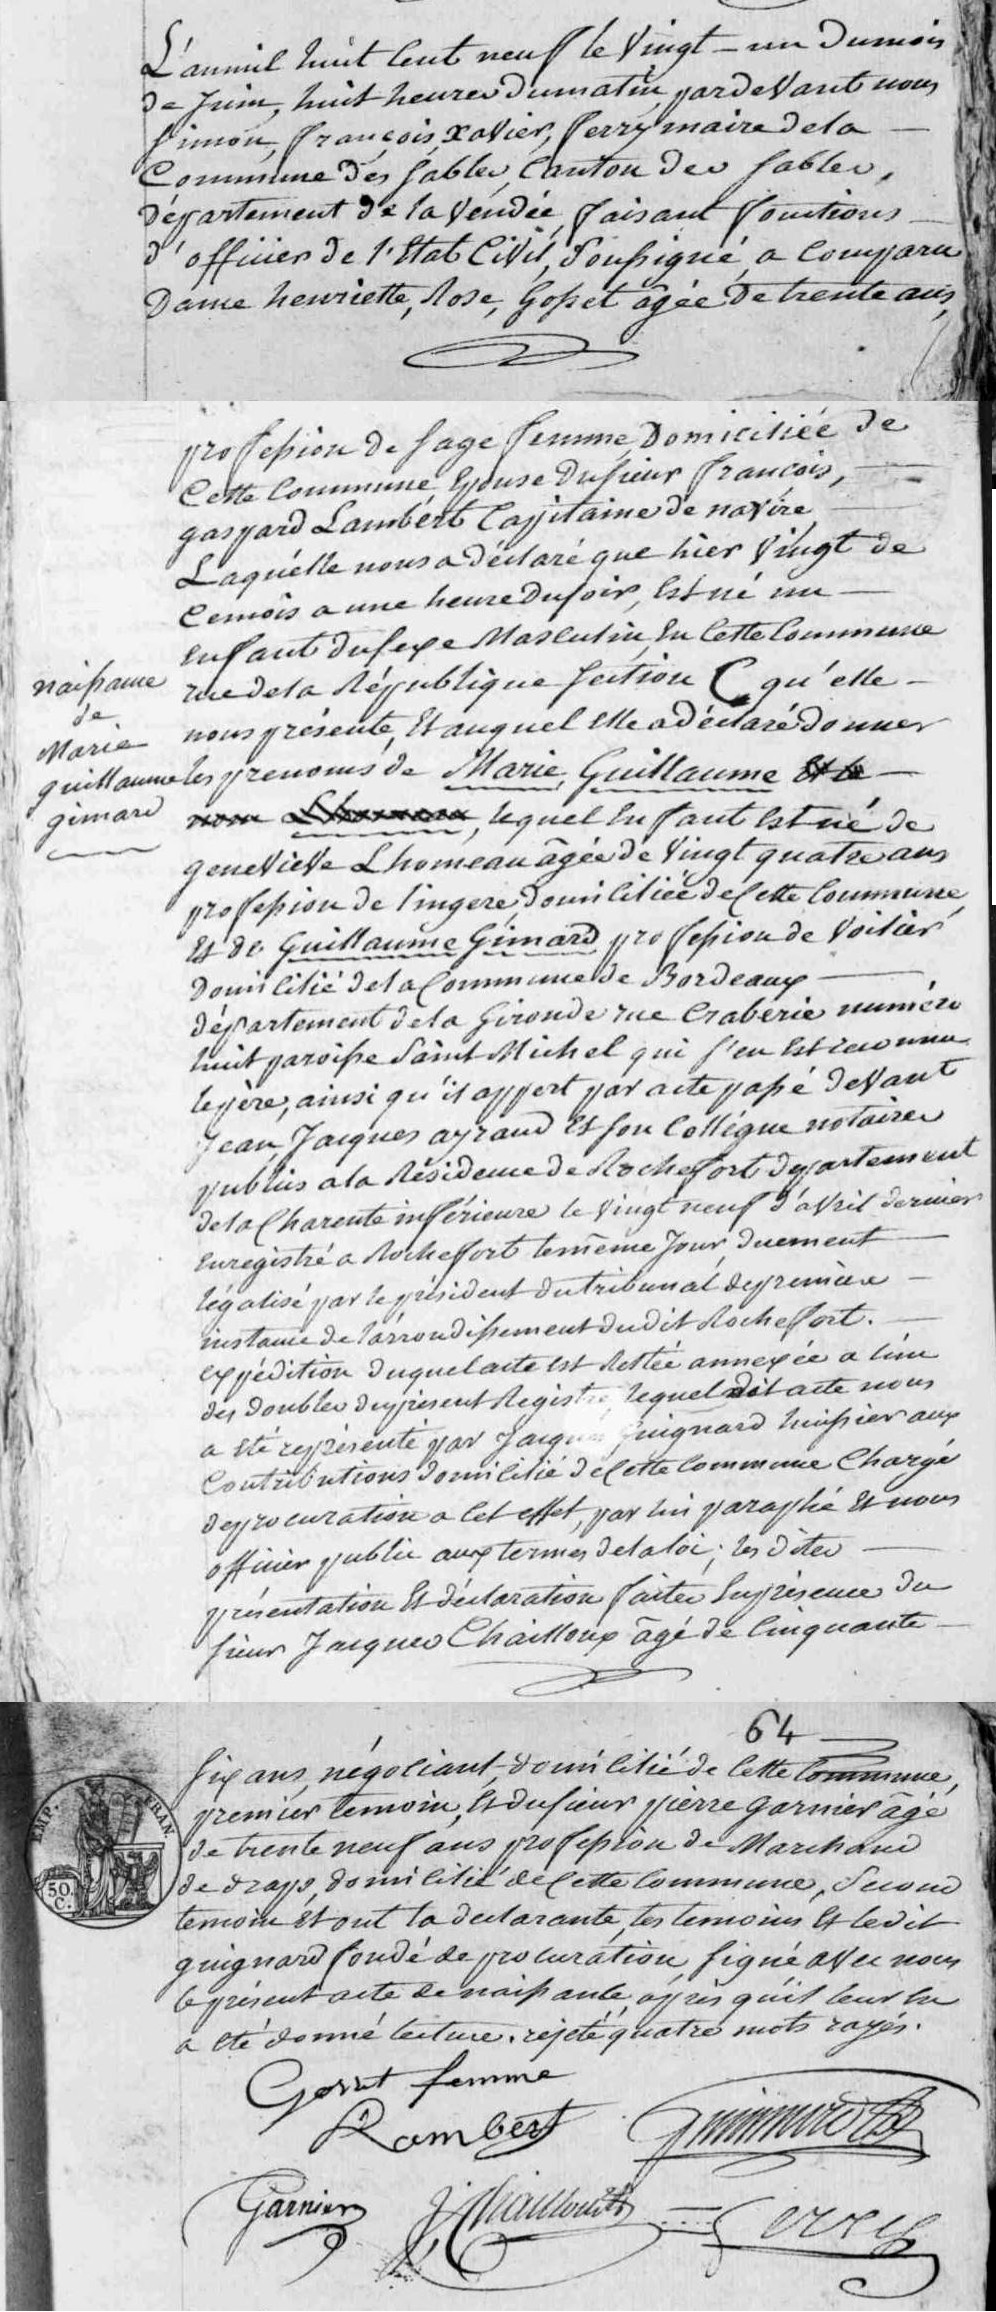 L'anmil huit Cent neuf le Vingt – un Dumois
de Juin, huit heures Dumatin, pardeVant nous
Simon, François, Xavier, ferry maire dela –
Commune Des Sables, Canton des Sables,
Département de la Vendée, faisant fonctions –
d'officier de l'Etat Civil, Soussigné, a Comparu
Dame henriette, Rose, Gosset âgée De trente ans,
profession de Sage femme, Domiciliée de
Cette Commune, Epouse Dusieur françois, –
gaspard Lambert Capitaine de navire, –
Laquélle nous a déclaré que hier Vingt de
Cemois a une heure Dusoir, Est né un –
Enfant dusexe Masculin, En Cette Commune
rue dela République Section C, qu'elle –
nous présente, Et auquel Elle a déclaré donner
naissance
de
Marie
guillaume
gimard
les prenoms de Marie, Guillaume Et le –
nom Lhomeau, lequel Enfant Est né de
geneViève Lhomeau âgée de Vingt quatre ans
profession de lingere, domiciliée deCette Commune,
Et de Guillaume Gimard profession de Voilier
Domicilié dela Commune de Bordeaux –
département dela Gironde rue Craberie numéro
huit paroisse Saint Michel qui s'en Est reconnu
lepère, ainsi qu'il appert par acte passé deVant
Jean, Jacques ayraud Et son Collégue notaires
publics ala Résidence de Rochefort département
dela Charente inférieure le Vingt neuf d'aVril dernier
Enregistré a Rochefort lemême Jour, duement –
légalisé par le président dutribunal depremière –
instance de l'arrondissement dudit Rochefort. –
expédition duquel acte Est Restée annexée a l'un
des doubles duprésent Registre, lequel dit acte nous
a été représenté par Jacques Guignard huissier aux
Contributions domicilié deCette Commune Chargé
deprocuration a Cet effet, par lui paraphé Et nous
officier public aux termes dela loi; les dites –
présentation Et déclaration faites Enprésence du
sieur Jacques Chailloux âgé de Cinquante –
64
six ans, négociant, domicilié de Cette Commune,
premier temoin, Et dusieur pierre garnier âgé
de trente neuf ans profession de Marchand
de draps, domicilié deCette Commune, Second
temoin Et ont la declarante, les temoins Et ledit
guignard fondé de procuration, Signé aVec nous
leprésent acte de naissance après qu'il leur En
a été donné lecture. rejeté quatre mots rayés.
EMP. FRAN
50.
C.
Gosset femme
Lambert
Garnier